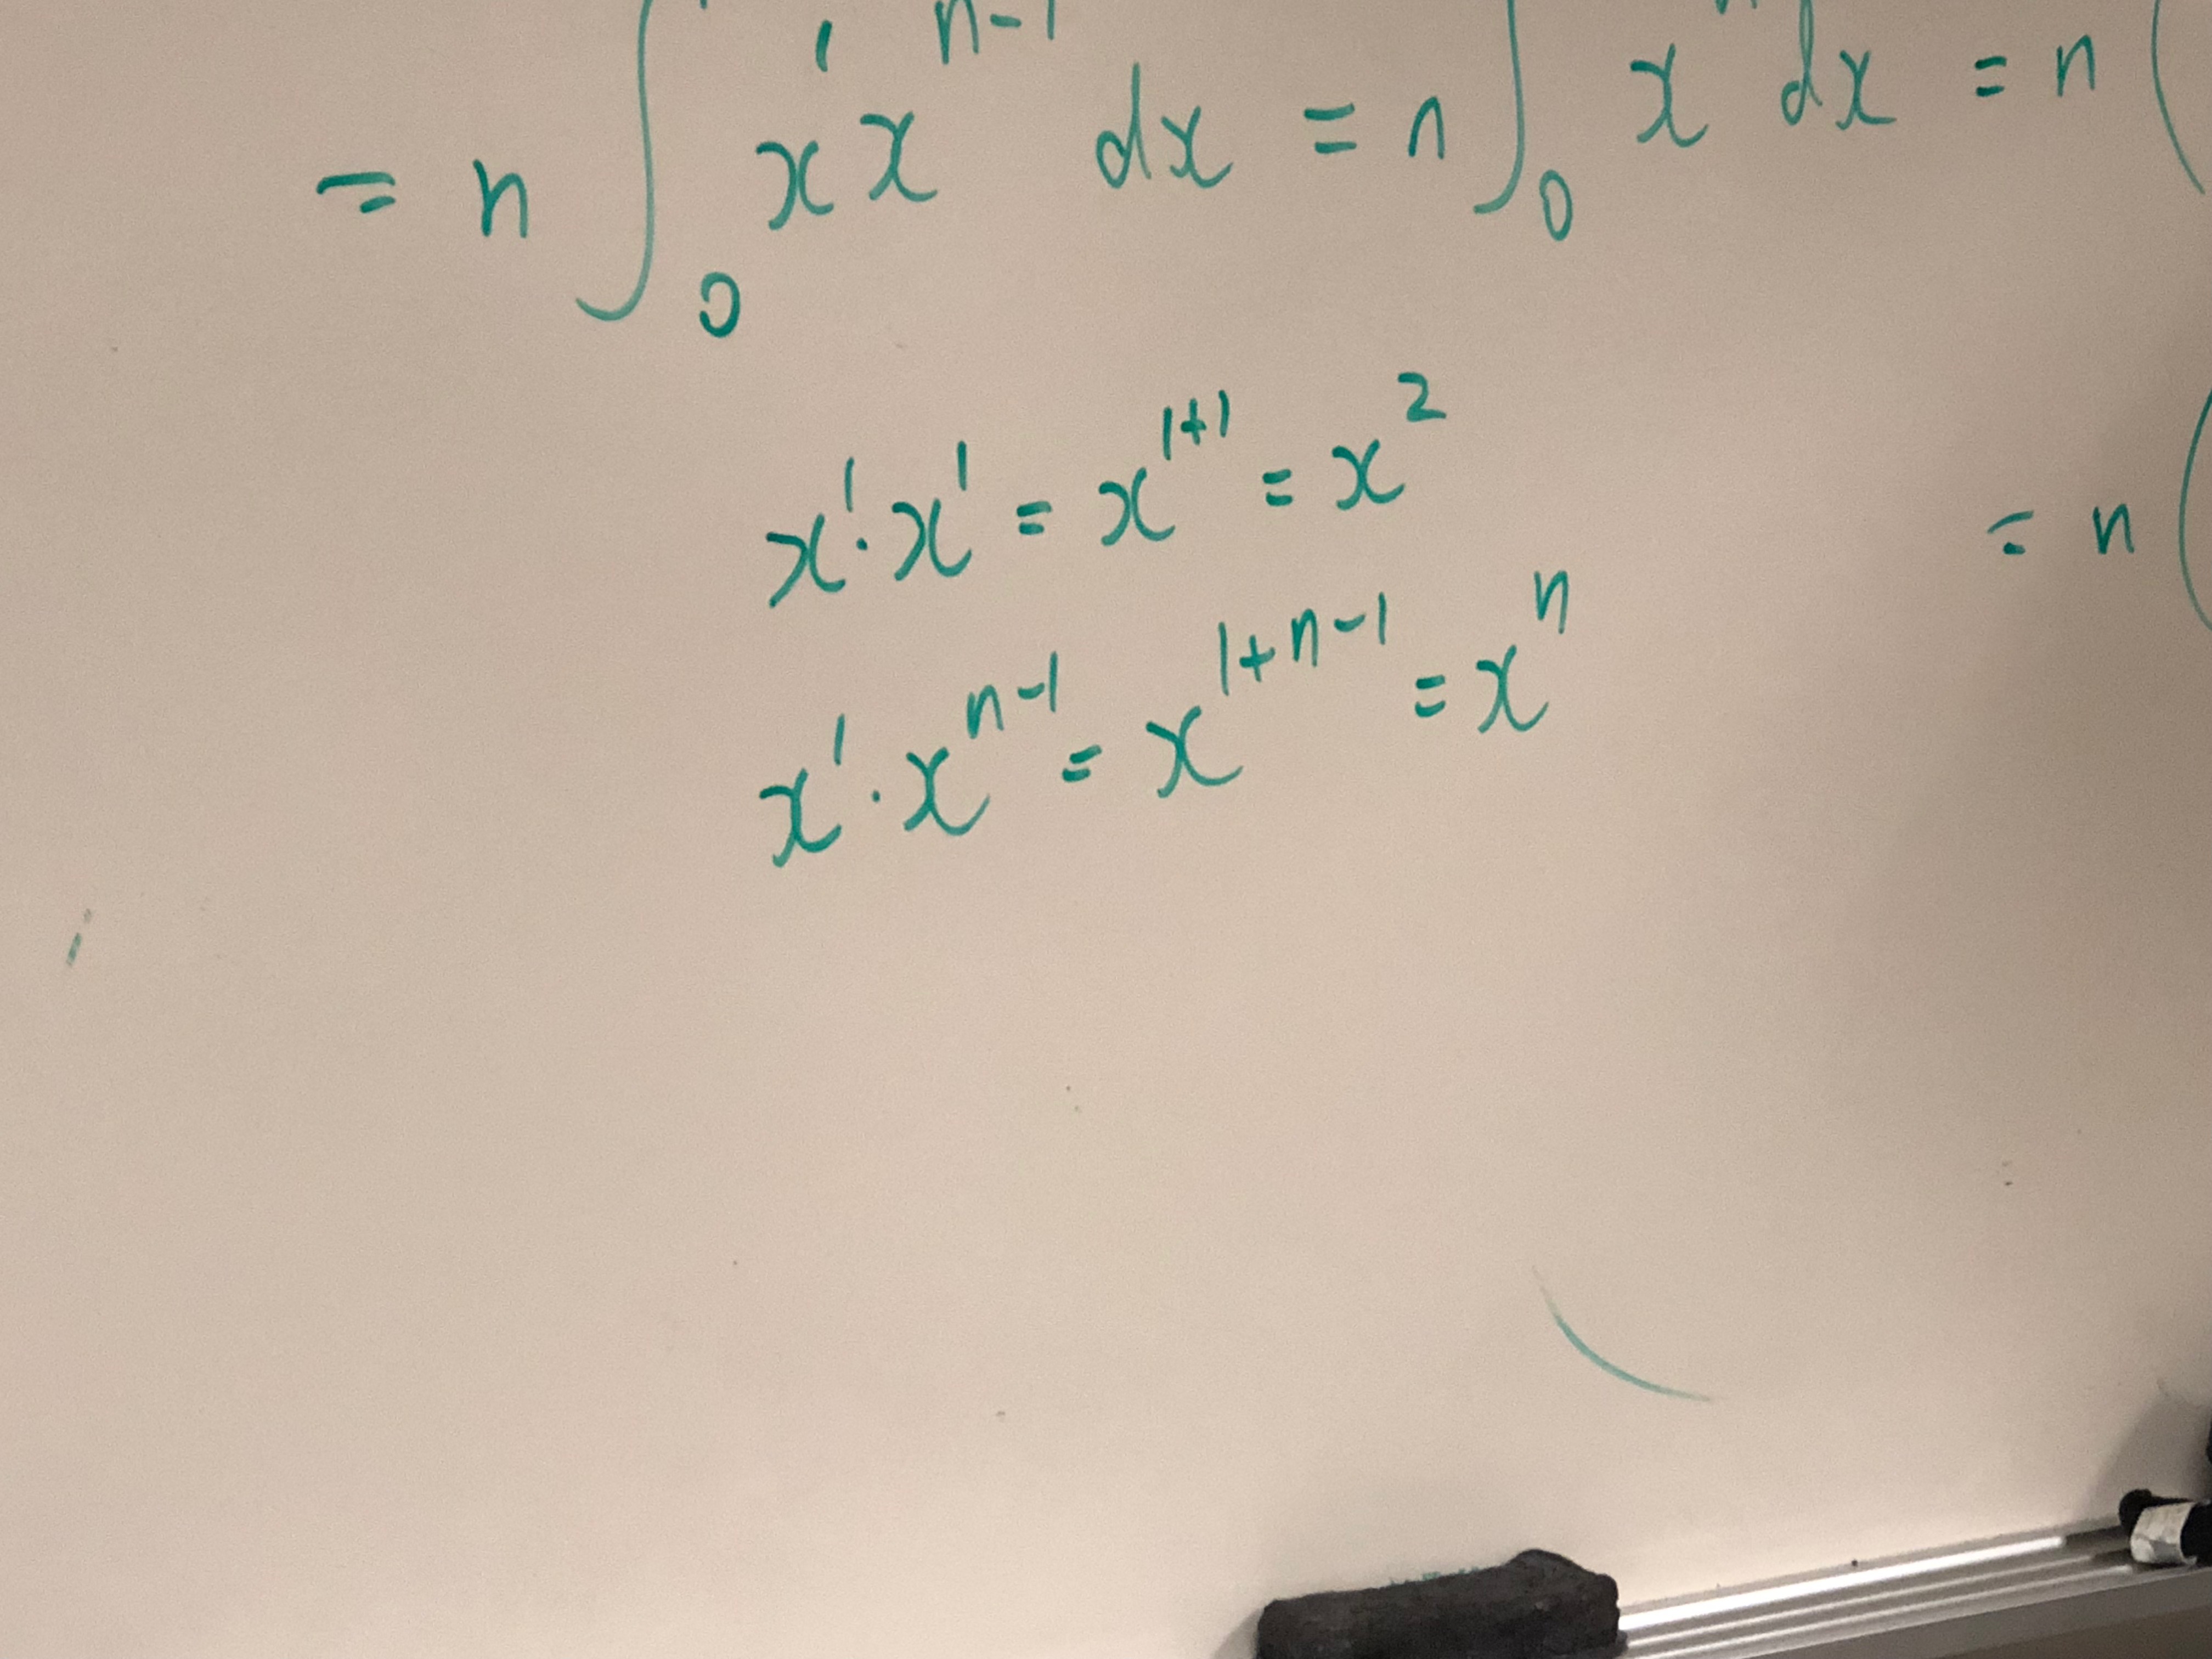 = n ∫₀ x¹ xⁿ⁻¹ dx = n ∫₀ x dx = n (
x¹ · x¹ = x¹⁺¹ = x²
= n (
x¹ · xⁿ⁻¹ = x¹⁺ⁿ⁻¹ = xⁿ